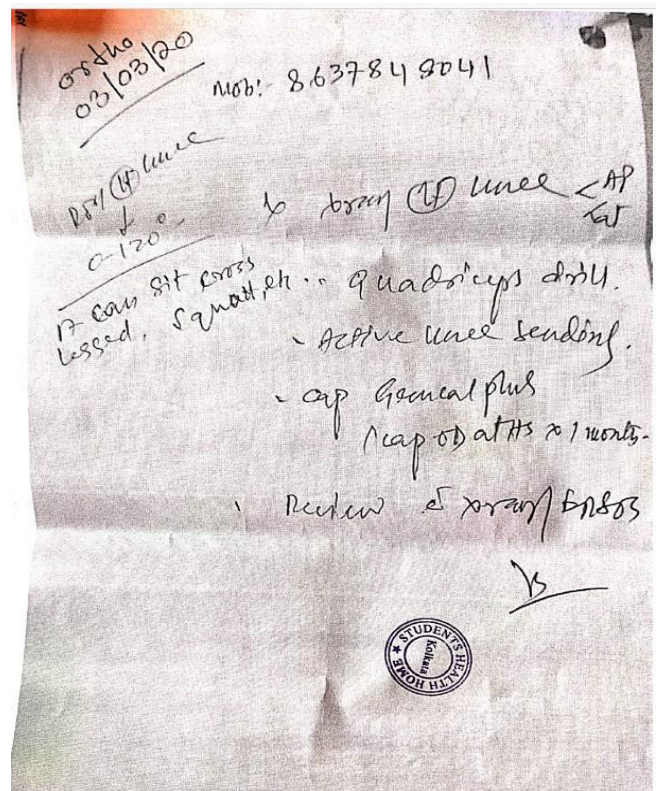 Ortho
03/03/20
Mob:- 8637848041
(Lt) knee
↓
0-120°
xray (Lt) knee < AP
Lat
Pt can sit cross
legged, squatt, etc
- Quadriceps drill.
- Active knee bending.
- cap Gemcal plus
1 cap OD at HS x 1 month-
- Review c̄ xray
STUDENTS HEALTH HOME
Kolkata